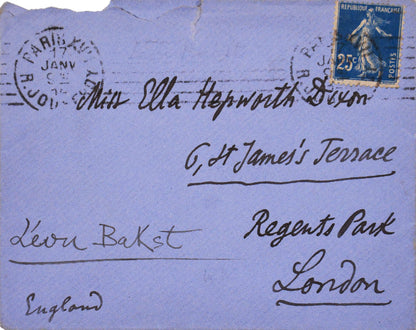 PARIS XVII
17
JANV
RÉPUBLIQUE FRANÇAISE
25c
POSTES
Miss Ella Hepworth Dixon
6, St James's Terrace
Regents Park
Léon Bakst
London
England